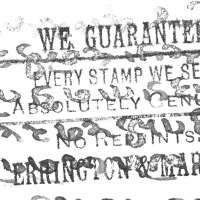 WE GUARANTEE
VERY STAMP WE SE
ABSOLUTELY GEN
NO REPRINTS
ERRINGTON & MAR